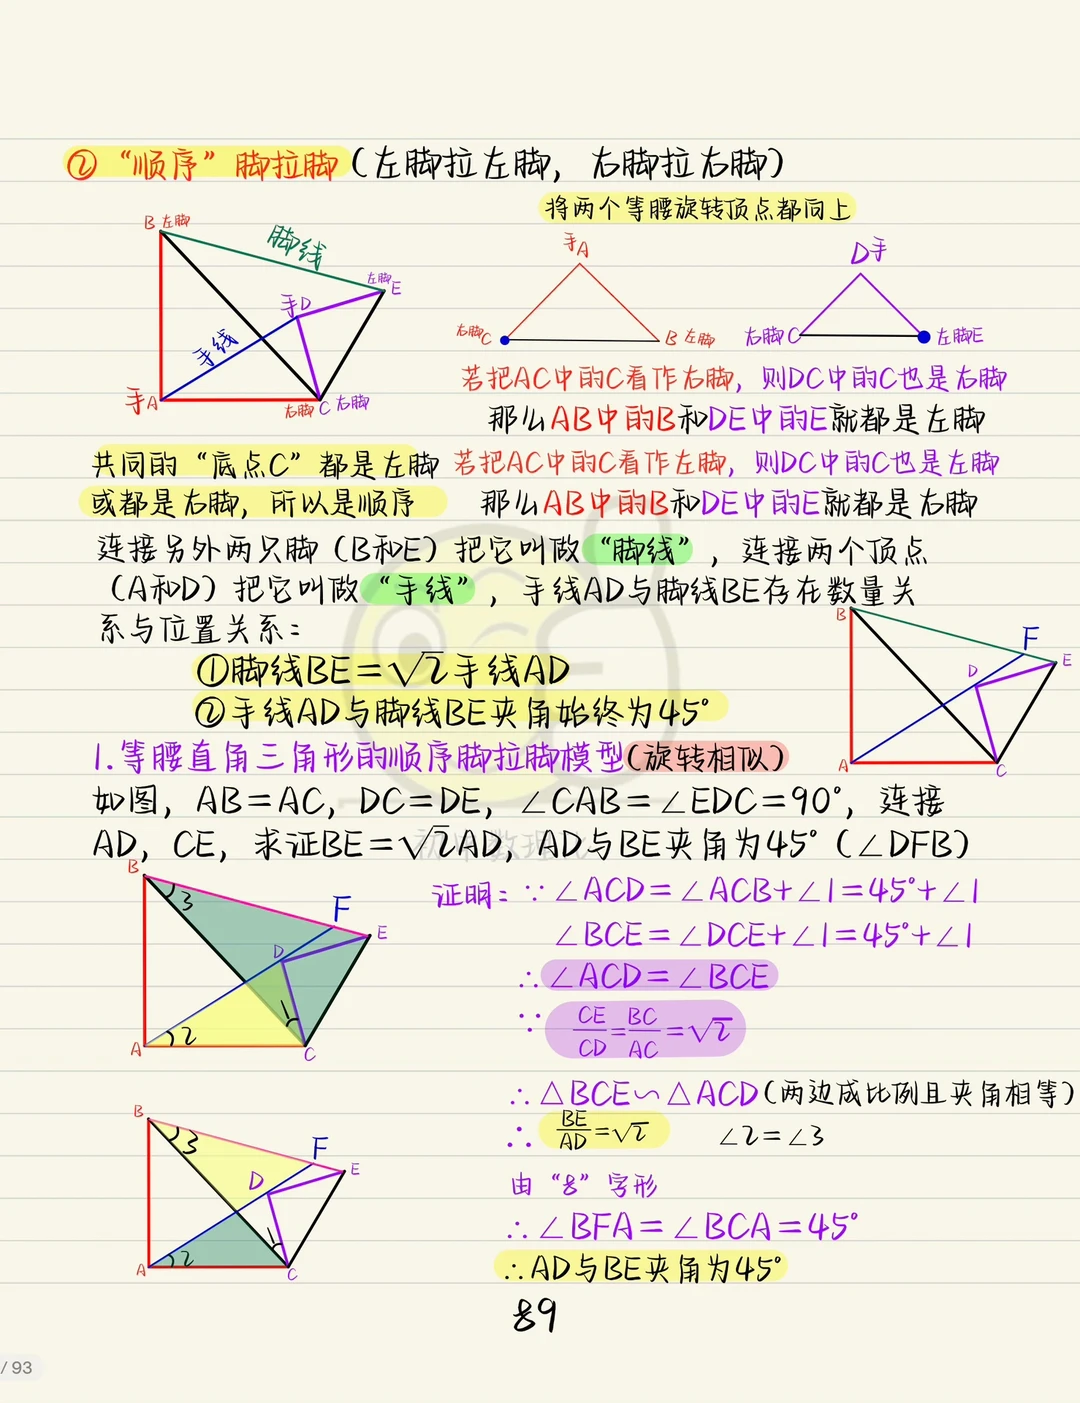 ② “顺序”脚拉脚(左脚拉左脚，右脚拉右脚)
将两个等腰旋转顶点都向上
B 左脚
脚线
左脚 E
手D
手线
手A
右脚 C 右脚
手A
右脚C
B 左脚
D手
右脚C
左脚E
若把AC中的C看作右脚，则DC中的C也是右脚
那么AB中的B和DE中的E就都是左脚
共同的“底点C”都是左脚
或都是右脚，所以是顺序
若把AC中的C看作左脚，则DC中的C也是左脚
那么AB中的B和DE中的E就都是右脚
连接另外两只脚（B和E）把它叫做“脚线”，连接两个顶点
（A和D）把它叫做“手线”，手线AD与脚线BE存在数量关
系与位置关系：
①脚线BE=√2手线AD
②手线AD与脚线BE夹角始终为45°
B
F
E
D
A
C
1.等腰直角三角形的顺序脚拉脚模型(旋转相似)
如图，AB=AC，DC=DE，∠CAB=∠EDC=90°，连接
AD，CE，求证BE=√2AD，AD与BE夹角为45°（∠DFB）
B
3
F
E
D
1
A
2
C
证明：∵∠ACD=∠ACB+∠1=45°+∠1
∠BCE=∠DCE+∠1=45°+∠1
∴∠ACD=∠BCE
∵ CE/CD=BC/AC=√2
∴△BCE∽△ACD(两边成比例且夹角相等)
∴ BE/AD=√2 ∠2=∠3
由“8”字形
∴∠BFA=∠BCA=45°
∴AD与BE夹角为45°
B
3
F
E
D
1
A
2
C
89
/ 93